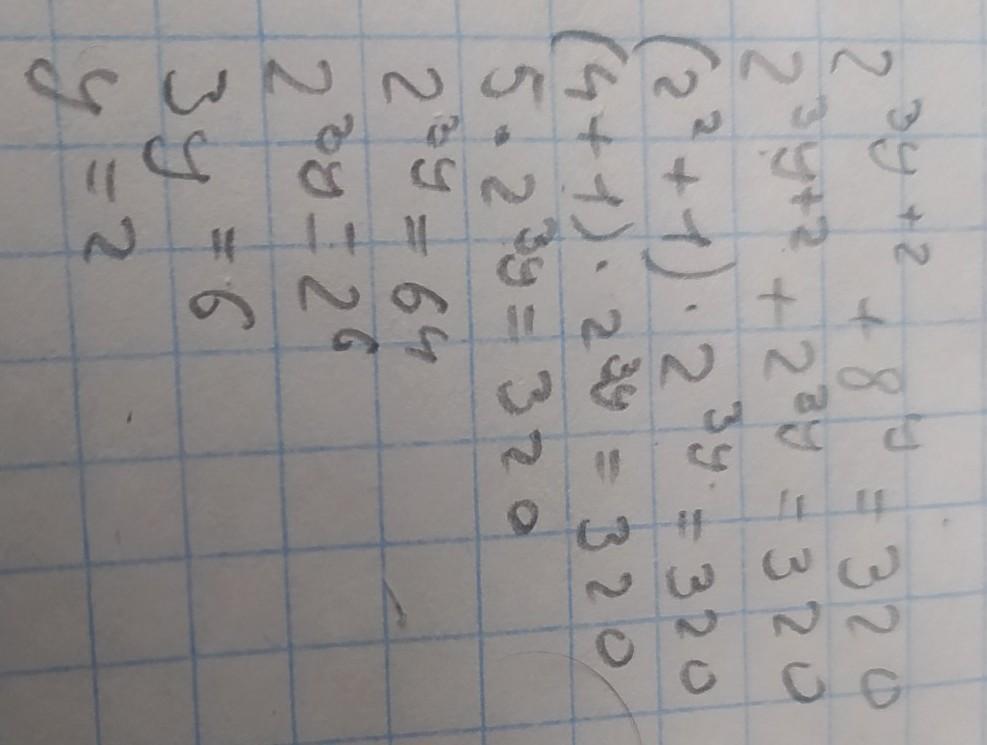 2^{3y+2} + 8^y = 320
2^{3y+2} + 2^{3y} = 320
(2^2+1)·2^{3y} = 320
(4+1)·2^{3y} = 320
5·2^{3y} = 320
2^{3y} = 64
2^{3y} = 2^6
3y = 6
y = 2